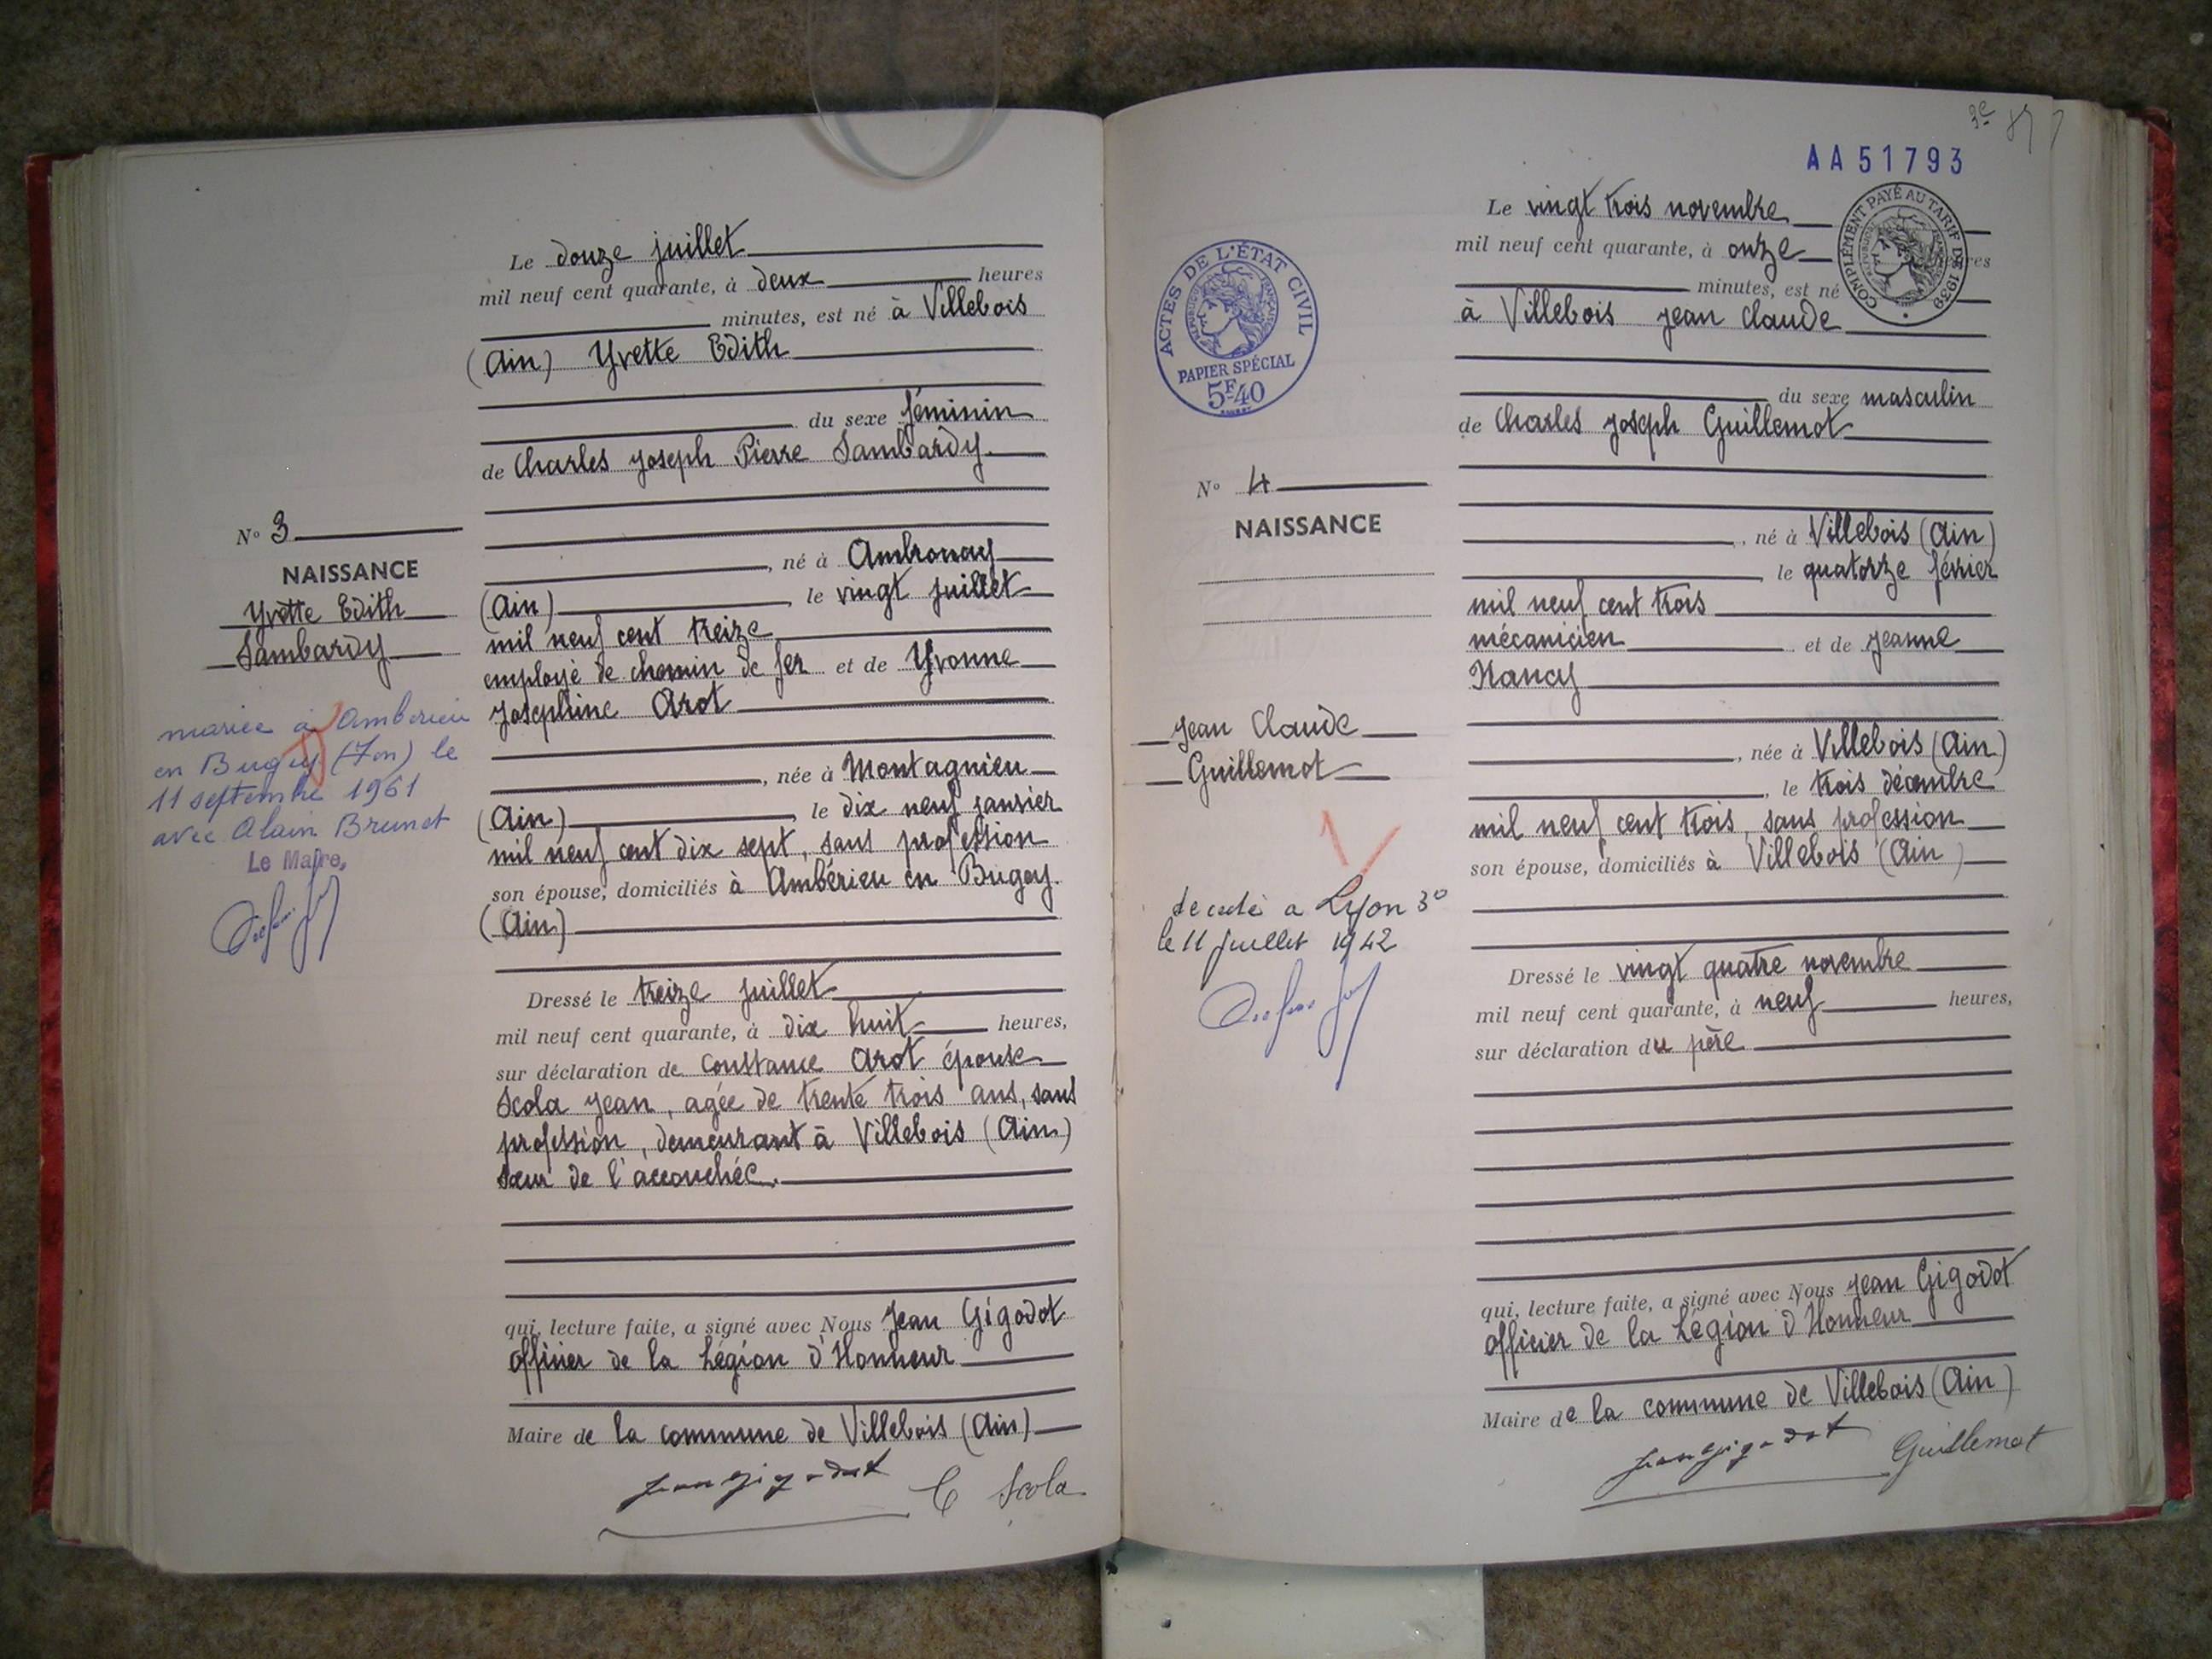 Le douze juillet
mil neuf cent quarante, à deux heures
minutes, est né à Villebois
(Ain) Yvette Edith
du sexe féminin
de Charles Joseph Pierre Sambardy.
N° 3
NAISSANCE
Yvette Edith
Sambardy
, né à Ambronay
(Ain) , le vingt juillet
mil neuf cent treize
employé de chemin de fer et de Yvonne
Josephine Arot
, née à Montagnieu
(Ain) , le dix neuf janvier
mil neuf cent dix sept, sans profession
son épouse, domiciliés à Ambérieu en Bugey.
(Ain)
mariee à Amberieu
en Bugey (Ain) le
11 septembre 1961
avec Alain Brunet
Le Maire,
Dressé le treize juillet
mil neuf cent quarante, à dix huit heures,
sur déclaration de Constance Arot épouse
Scola Jean, agée de trente trois ans, sans
profession, demeurant à Villebois (Ain)
sœur de l'accouchée.
qui, lecture faite, a signé avec Nous Jean Gigodot
officier de la Légion d'Honneur
Maire de la commune de Villebois (Ain)
Jean Gigodot C Scola
AA51793
COMPLÉMENT PAYÉ AU TARIF DE 1939
ACTES DE L'ÉTAT CIVIL
RÉPUBLIQUE FRANÇAISE
PAPIER SPÉCIAL
5F40
Le vingt trois novembre
mil neuf cent quarante, à onze heures
minutes, est né
à Villebois Jean Claude
du sexe masculin
de Charles Joseph Guillemot
N° 4
NAISSANCE
Jean Claude
Guillemot
, né à Villebois (Ain)
, le quatorze février
mil neuf cent trois
mécanicien et de Jeanne
Nancy
, née à Villebois (Ain)
, le trois décembre
mil neuf cent trois, sans profession
son épouse, domiciliés à Villebois (Ain)
decedé a Lyon 3°
le 11 juillet 1942
Dressé le vingt quatre novembre
mil neuf cent quarante, à neuf heures,
sur déclaration du père
qui, lecture faite, a signé avec Nous Jean Gigodot
officier de la Légion d'Honneur
Maire de la commune de Villebois (Ain)
Jean Gigodot Guillemot